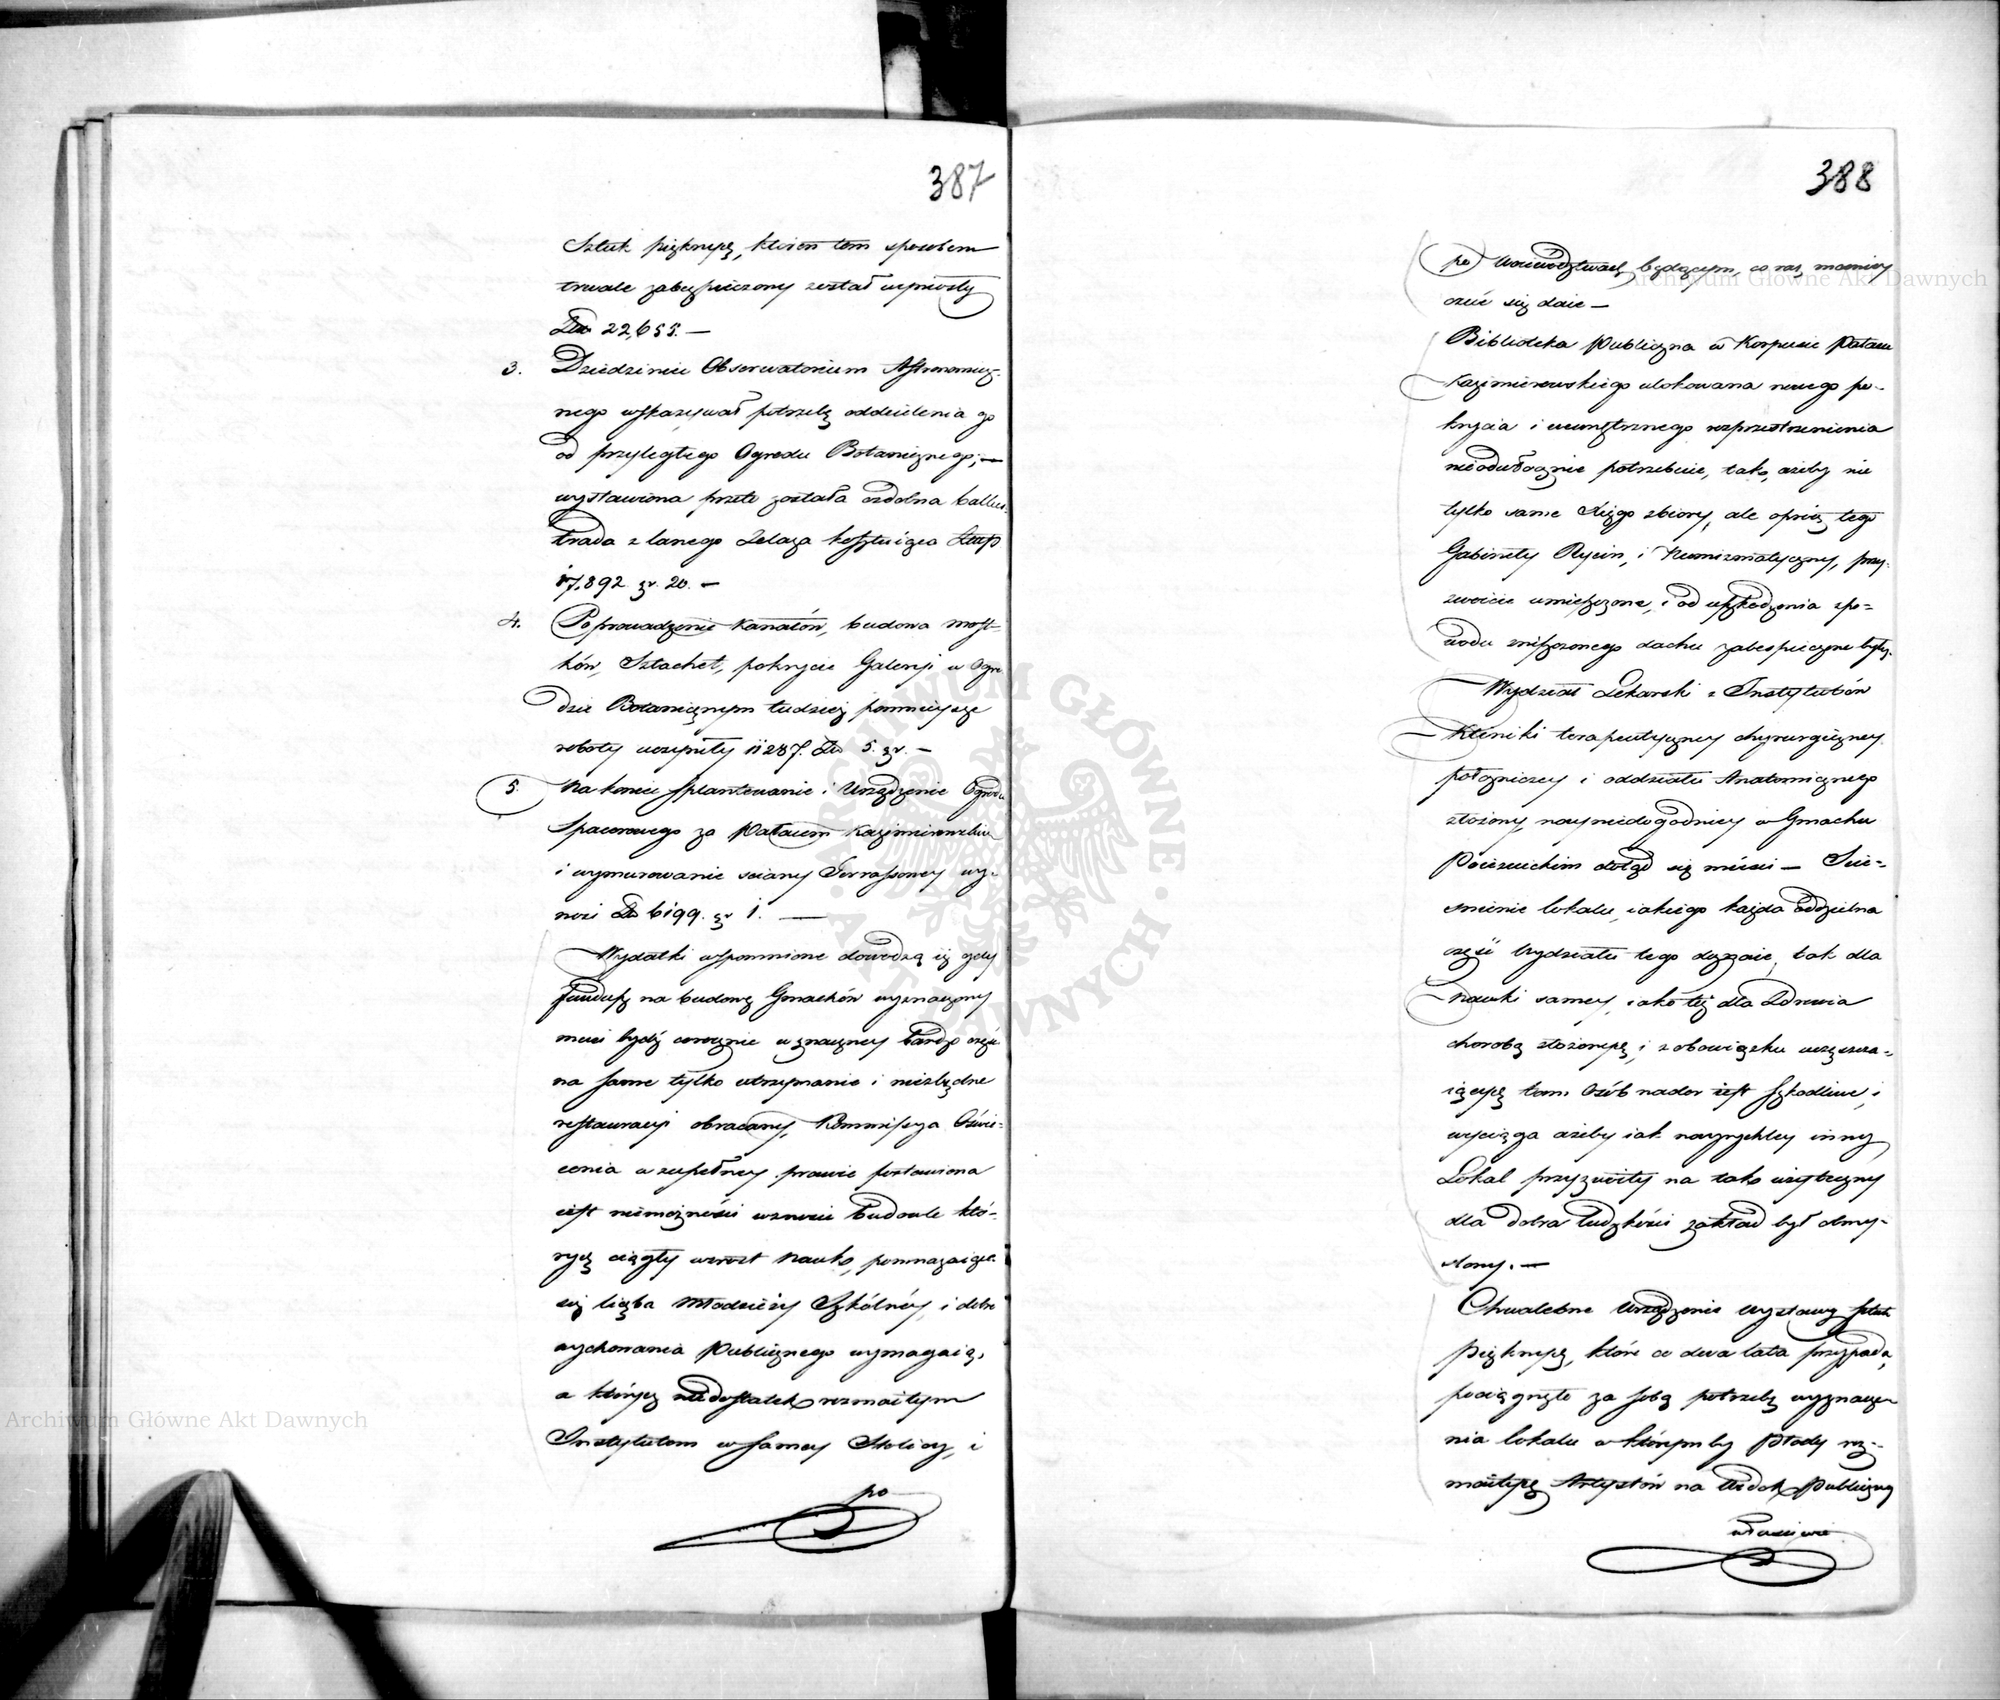 387
Sztuk pięknych, który tem sposobem
trwale zabezpieczony został wyniosły
Złp 22,655. —
3. Dziedziniec Obserwatorium Astronomicz-
nego wskazywał potrzebę oddzielenia go
od przyległego Ogrodu Botanicznego; —
wystawiona przeto została ozdobna ballus-
trada z lanego Żelaza kosztuiąca Złtp
17,892 gr. 20. —
4. Poprowadzenie Kanałów, budowa most-
ków, Sztachet, pokrycie Galeryi w Ogro
dzie Botanicznym tudzież pomnieysze
roboty uczyniły 11287. Złp 5. gr. —
5. Nakoniec splantowanie i Urządzenie Ogrodu
Spacerowego za Pałacem Kazimirowskim
i wymurowanie sciany Terrassowey wy-
nosi Złp 6199. gr 1. —
Wydatki wspomnione dowodzą iż gdy
fundusz na budowę Gmachów wyznaczony
musi bydź corocznie w znaczney bardzo części
na same tylko utrzymanie i niezbędne
restauracye obracany, Kommissya Oświe-
cenia w zupełney prawie postawiona
iest niemożności wznosić budowle któ-
rych ciągły wzrost Nauk, pomnażaiąca
się liczba Młodzieży Szkólney, i dobro
wychowania Publicznego wymagaią,
a których niedostatek rozmaitym
Instytutom w samey Stolicy, i
po
388
po Województwach będącym, co raz mocniey
czuć się daie —
Biblioteka Publiczna w Korpusie Pałacu
Kazimirowskiego ulokowana nowego po-
krycia i wewnętrznego rozprzestrzenienia
nieodwłocznie potrzebuie, tak, ażeby nie
tylko same Xiąg zbiory, ale oprócz tego
Gabinety Rycin, i Numizmatyczny, przy-
zwoicie umieszczone, i od uszkodzenia z po-
wodu zniszczonego dachu zabespieczone były.
Wydział Lekarski z Instytutów
Kliniki terapeutyczney chyrurgiczney
położniczey i oddziału Anatomicznego
złożony, nayniedogodniey w Gmachu
Pojezuickim dotąd się mieści — Scie-
śnienie lokalu, iakiego każda oddzielna
część Wydziału tego doznaie, tak dla
Nauki samey, iako też dla Zdrowia
chorobą złożonych, i z obowiązku uczęszcza-
iących tam Osób nader iest szkodliwe, i
wyciąga ażeby iak nayrychley inny
Lokal przyzwoity na tak użyteczny
dla dobra ludzkości zakład był obmy-
ślony. —
Chwalebne Urządzenie Wystawy Sztuk
Pięknych, które co dwa lata przypada,
pociągnęło za sobą potrzebę wyznacze-
nia lokalu w którymby Płody roz-
maitych Artystów na Widok Publiczny
właściwie
Archiwum Główne Akt Dawnych
Archiwum Główne Akt Dawnych
ARCHIWUM GŁÓWNE AKT DAWNYCH